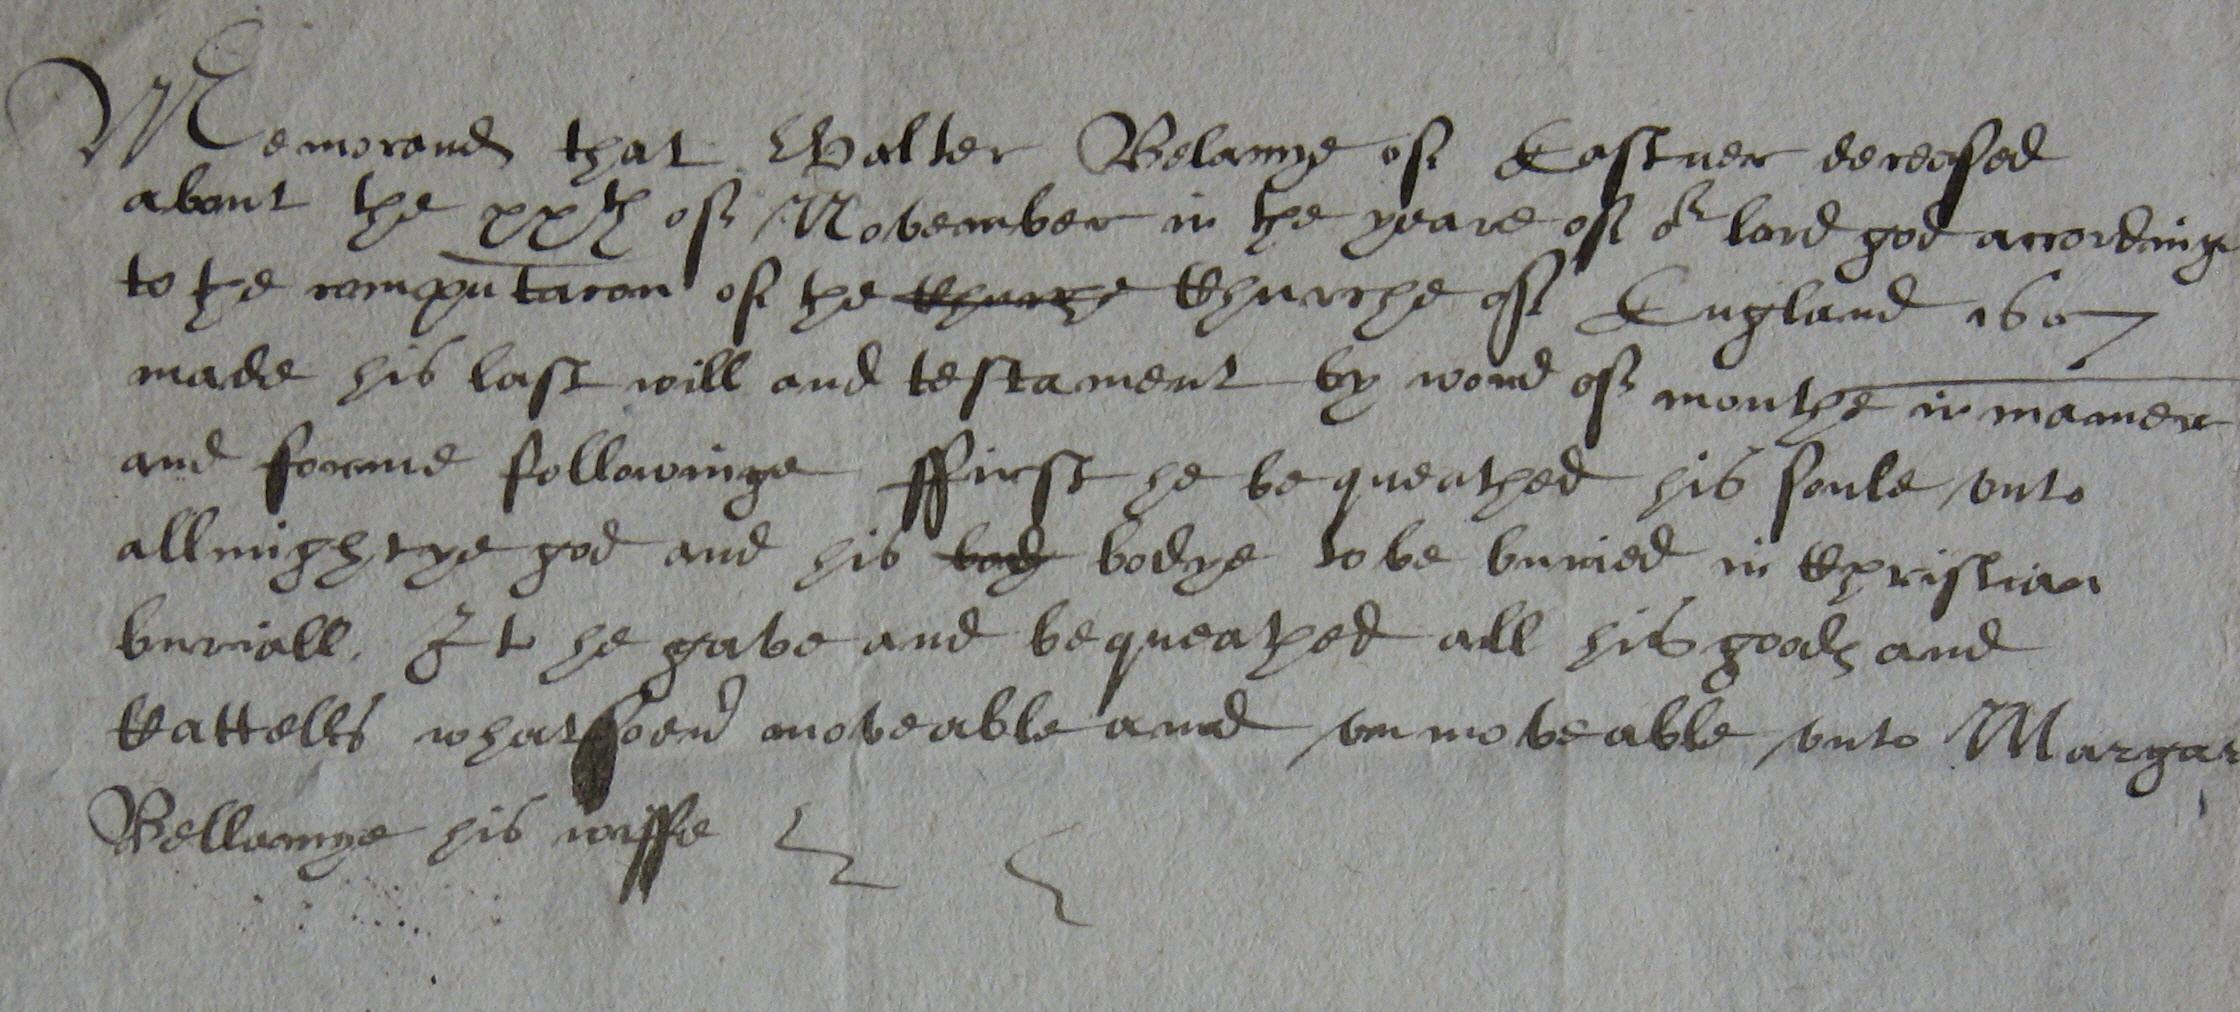 Memorand that Walter Belamye of Eastner deceased
about the xxth of November in the yeare of or lord god accordinge
to the computacon of the Churche Churche of England 1607
made his last will and testament by word of mouthe in manner
and forme followinge ffirst he bequeathed his soule vnto
allmightye god and his body bodye to be buried in Christian
buriall. It he gave and bequeathed all his goods and
Cattells whatsoeu moveable and vnmoveable vnto Margar
Bellamye his wiffe